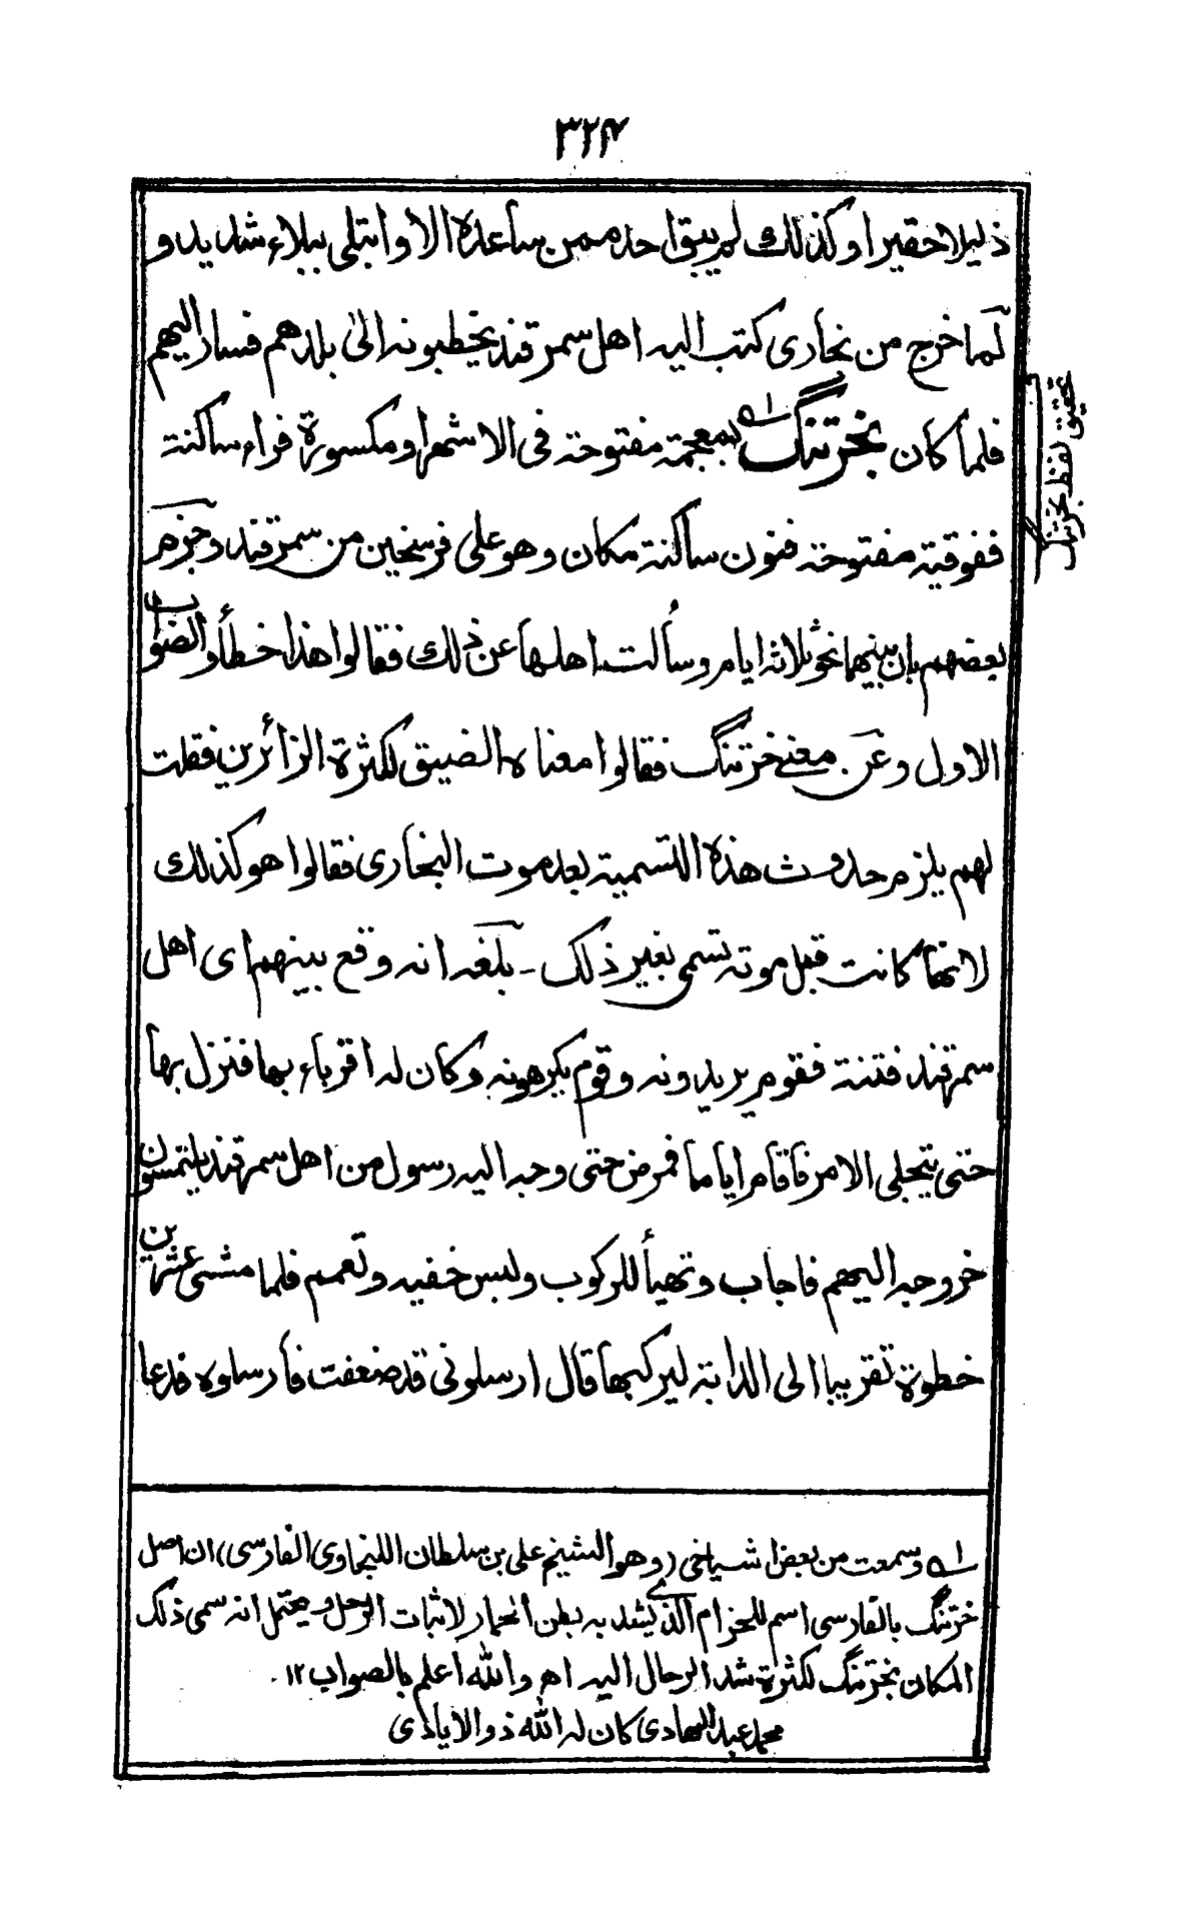 ۳۲۴
ذليلا حقيرا وكذلك لم يبق احد ممن ساعده الا وابتلى ببلاء شديد و
لما خرج من بخارى كتب اليه اهل سمرقند يخطبونه الى بلدهم فسار اليهم
فلما كان بخرتنگ له بمعجمة مفتوحة فى الاشهر او مكسورة فراء ساكنة
ففوقية مفتوحة فنون ساكنة مكان وهو على فرسخين من سمرقند وجزم
بعضهم بان بينهما نحو ثلاثة ايام وسألت اهلها عن ذلك فقالوا هذا خطأ والصواب
الاول وعن معنے خرتنگ فقالوا معناه الضيق لكثرة الزائرين فقلت
لهم يلزم حدوث هذه التسمية بعد موت البخارى فقالوا هو كذلك
لانها كانت قبل موته تسمى بغير ذلك - بلغه انه وقع بينهم اى اهل
سمرقند فتنة فقوم يريدونه وقوم يكرهونه وكان له اقرباء بها فنزل بها
حتى ينجلى الامر فاقام اياما فمرض حتى وجه اليه رسول من اهل سمرقند يلتمسون
خروجه اليهم فاجاب وتهيأ للركوب ولبس خفيه وتعمم فلما مشى عشرين
خطوة تقريبا الى الدابة ليركبها قال ارسلونى قد ضعفت فأرسلوه فدعا
تحقيق لفظ بخرتنگ
له وسمعت من بعض اشياخى (وهو الشيخ على بن سلطان اللنجاوى الفارسى) ان اصل
خرتنگ بالفارسى اسم للحزام الذے يشد به بطن الحمار لاثبات الرحل ويحتمل انه سمى ذلك
المكان بخرتنگ لكثرة شد الرحال اليه اهـ والله اعلم بالصواب ۱۲.
محمد عبد الهادى كان له الله ذو الايادى